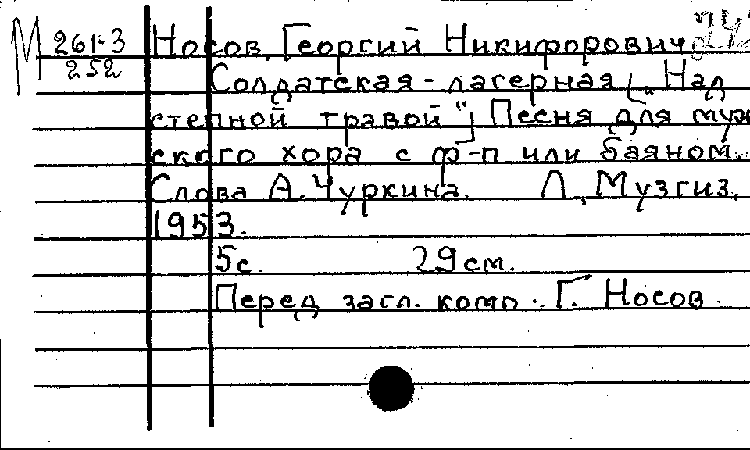 М 261-3
252
Носов, Георгий Никифорович.
Солдатская-лагерная [„Над
степной травой"] Песня для муж
ского хора с ф-п или баяном.
Слова А. Чуркина. Л., Музгиз,
1953.
5с. 29см.
Перед загл. комп.: Г. Носов